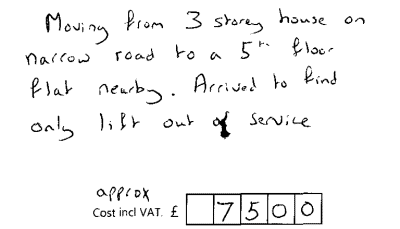 Moving from 3 storey house on
narrow road to a 5th floor
flat nearby. Arrived to find
only lift out of service
approx
Cost incl VAT. £ 7500